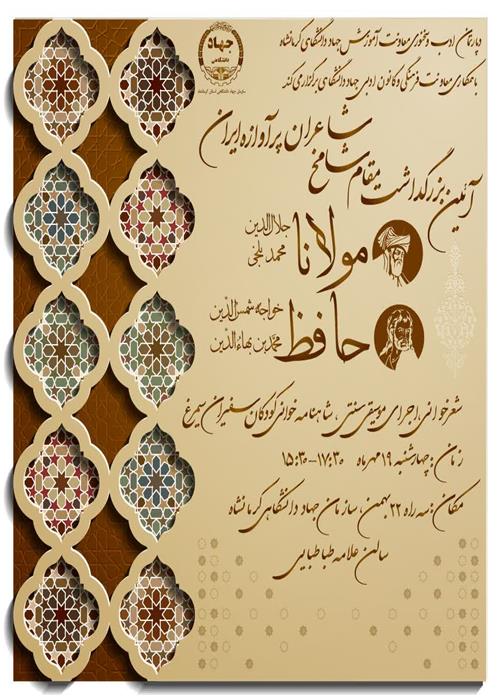 دپارتمان ادب و سخنوری معاونت آموزش جهاد دانشگاهی کرمانشاه
با همکاری معاونت فرهنگی و کانون ادبی جهاد دانشگاهی برگزار می کند
جهاد
دانشگاهی
سازمان جهاد دانشگاهی استان کرمانشاه
آئین بزرگداشت مقام شامخ
شاعران پرآوازه ایران
مولانا
جلال الدین
محمد بلخی
حافظ
خواجه شمس الدین
محمد بن بهاءالدین
شعرخوانی اجرای موسیقی سنتی، شاهنامه خوانی کودکان سفیران سیمرغ
زمان: چهارشنبه ۱۹ مهرماه ۱۷:۳۰-۱۵:۳۰
مکان: سه راه ۲۲ بهمن، سازمان جهاد دانشگاهی کرمانشاه
سالن علامه طباطبایی